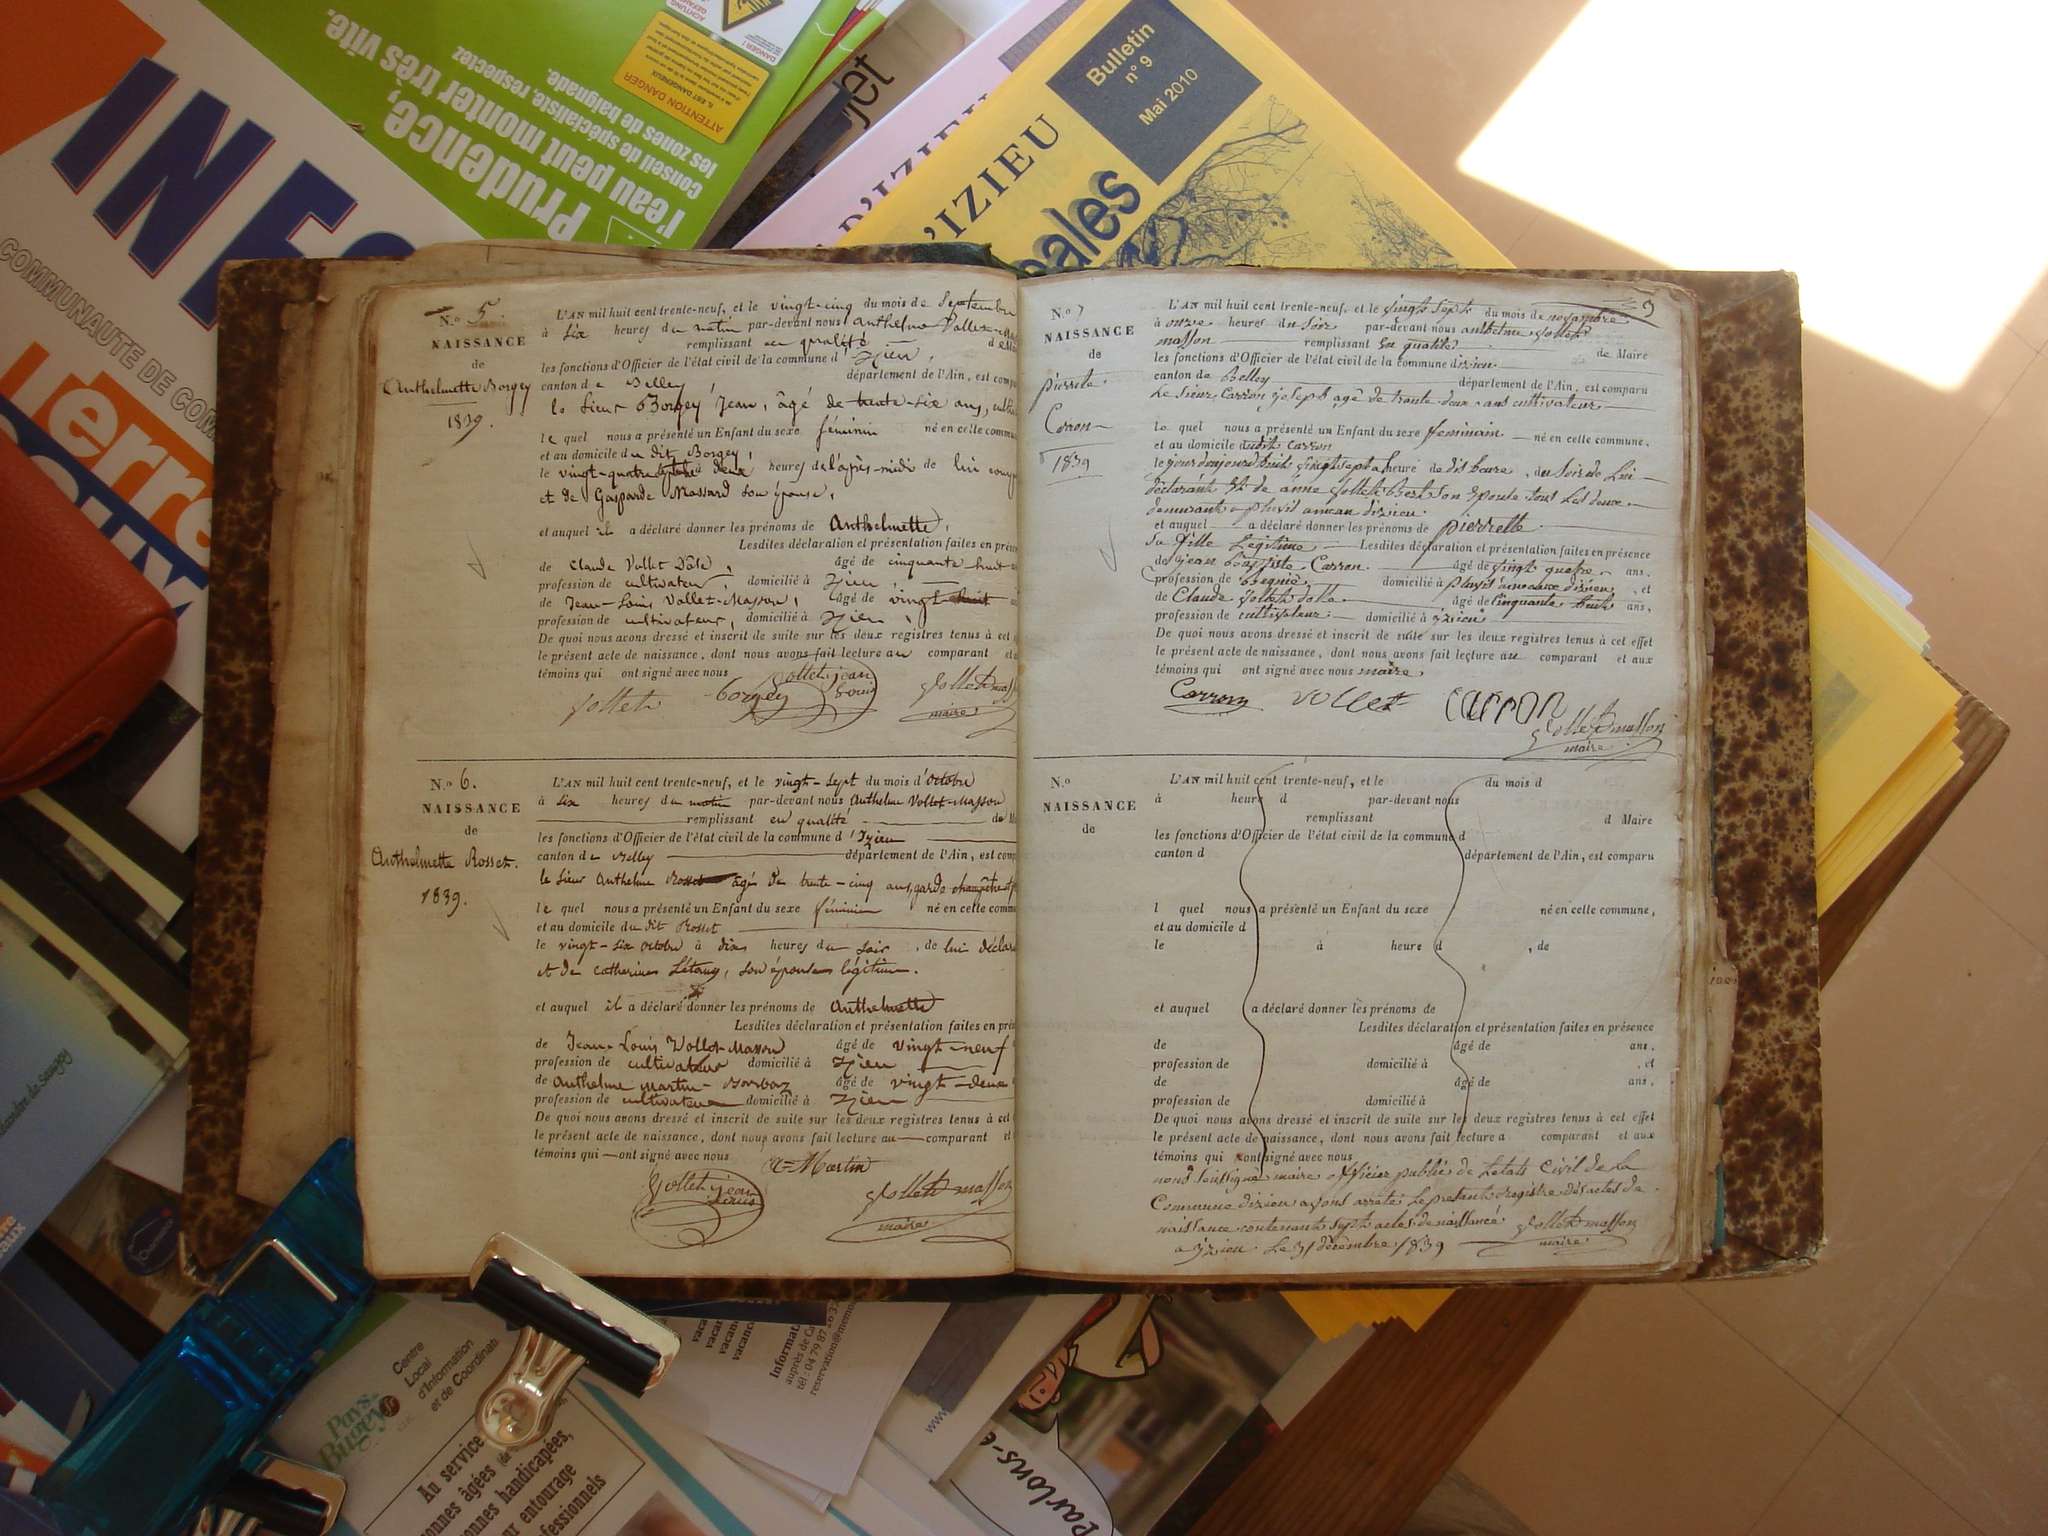 INFO
COMMUNAUTE DE COM
Terre
Prudence,
l'eau peut monter très vite.
Conseil de spécialiste, respectez
les zones de baignade.
ATTENTION DANGER
D'IZIEU
Bulletin
n° 9
Mai 2010
D'IZIEU
N.º 5.
NAISSANCE
de
Anthelmette Borgey
1839.
L'AN mil huit cent trente-neuf, et le vingt-cinq du mois de Septembre
à six heures du matin par-devant nous Anthelme Vollet
remplissant en qualité
les fonctions d'Officier de l'état civil de la commune d'Izieu,
canton de Belley département de l'Ain, est comp
le Sieur Borgey Jean, âgé de trente-six ans,
le quel nous a présenté un Enfant du sexe féminin né en cette commu
et au domicile du dit Borgey,
le vingt-quatre deux heures de l'après-midi de lui
et de Gasparde Massard son épouse,
et auquel il a déclaré donner les prénoms de Anthelmette,
Lesdites déclaration et présentation faites en prés
de Claude Vollet Dôle, âgé de cinquante-huit
profession de cultivateur, domicilié à Izieu,
de Jean-Louis Vollet-Masson, âgé de vingt-huit
profession de cultivateur, domicilié à Izieu,
De quoi nous avons dressé et inscrit de suite sur les deux registres tenus à cet
le présent acte de naissance, dont nous avons fait lecture au comparant et
témoins qui ont signé avec nous
Vollet borgey Vollet jean Louis Vollet mass
maire
N.º 6.
NAISSANCE
de
Anthelmette Rosset.
1839.
L'AN mil huit cent trente-neuf, et le vingt-sept du mois d'Octobre
à six heures du matin par-devant nous Anthelme Vollet-Masson
remplissant en qualité de M
les fonctions d'Officier de l'état civil de la commune d'Izieu
canton de Belley département de l'Ain, est comp
le Sieur Anthelme Rosset âgé de trente-cinq ans, garde champêtre
le quel nous a présenté un Enfant du sexe féminin né en cette comm
et au domicile du dit Rosset
le vingt-six octobre à dix heures du soir, de lui déclar
et de Catherine son épouse légitime.
et auquel il a déclaré donner les prénoms de Anthelmette
Lesdites déclaration et présentation faites en prés
de Jean-Louis Vollet-Masson âgé de vingt-neuf
profession de cultivateur domicilié à Izieu
de Anthelme Martin- âgé de vingt-deux
profession de cultivateur domicilié à Izieu
De quoi nous avons dressé et inscrit de suite sur les deux registres tenus à cet
le présent acte de naissance, dont nous avons fait lecture au comparant et
témoins qui ont signé avec nous
A=Martin
Vollet jean Louis Vollet masson
maire
9
N.º 7
NAISSANCE
de
pierrete
Carron
1839
L'AN mil huit cent trente-neuf, et le vingt sept du mois de novembre
à onze heures du soir par-devant nous anthelme Vollet
masson remplissant en qualité de Maire
les fonctions d'Officier de l'état civil de la commune dizieu
canton de Belley département de l'Ain, est comparu
Le sieur Carron joseph agé de trante deux ans cultivateur
le quel nous a présenté un Enfant du sexe feminain né en cette commune,
et au domicile dudit Carron
le jour daujourdhuit vingt sept a heure de dis heure du soir de Lui
déclarant et de anne Vollet Bert son épouse tous Les deux
demurant a dizieu
et auquel a déclaré donner les prénoms de pierrette
sa fille Legitime Lesdites déclaration et présentation faites en présence
de jean baptiste Carron âgé de vingt quatre ans,
profession de domicilié à dizieu, et
de Claude Vollet dolle âgé de cinquante huit ans,
profession de cultivateur domicilié à yzieu
De quoi nous avons dressé et inscrit de suite sur les deux registres tenus à cet effet
le présent acte de naissance, dont nous avons fait lecture au comparant et aux
témoins qui ont signé avec nous maire
Carron vollet carron
Vollet masson
maire
N.º
NAISSANCE
de
L'AN mil huit cent trente-neuf, et le du mois d
à heure d par-devant nous
remplissant d Maire
les fonctions d'Officier de l'état civil de la commune d
canton d département de l'Ain, est comparu
l quel nous a présenté un Enfant du sexe né en cette commune,
et au domicile d
le à heure d , de
et auquel a déclaré donner les prénoms de
Lesdites déclaration et présentation faites en présence
de âgé de ans,
profession de domicilié à , et
de âgé de ans,
profession de domicilié à
De quoi nous avons dressé et inscrit de suite sur les deux registres tenus à cet effet
le présent acte de naissance, dont nous avons fait lecture a comparant et aux
témoins qui ont signé avec nous
nous soussigné maire officier public de Letat Civil de la
Commune dizieu avons arrété Le présant registre des actes de
naissance contenant sept actes de naissance Vollet masson
a yzieu Le 31 décembre 1839 maire
Centre
Local
d'Information
et de Coordinati
Pays
Bugey
Au service
onnes âgées
onnes handicapées,
ur entourage
ofessionnels
Parlons-e